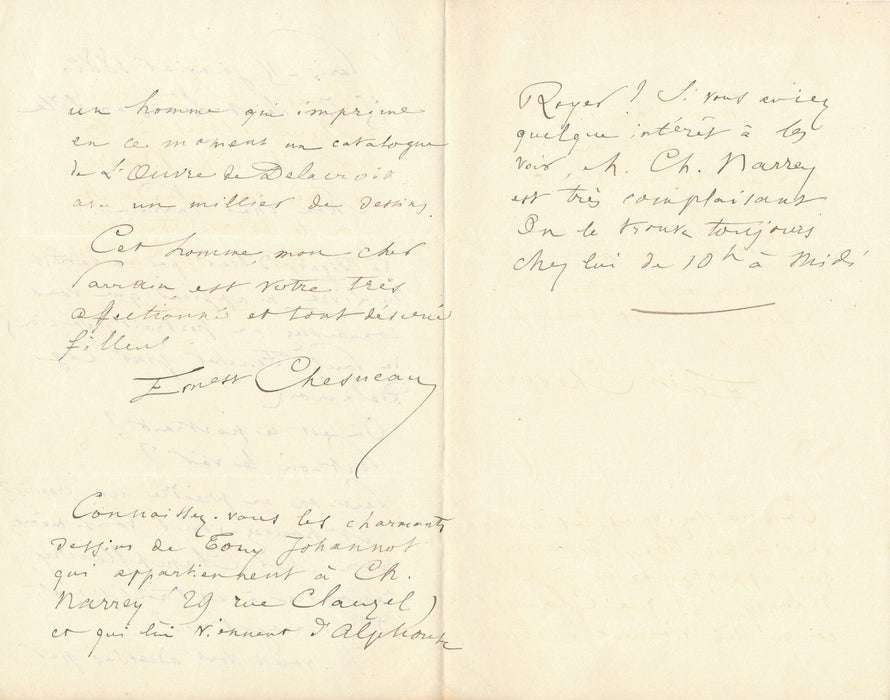 un homme qui imprime
en ce moment un catalogue
de L'Œuvre de Delacroix
avec un millier de dessins.
Cet homme mon cher
Parrain est votre très
affectionné et tout dévoué
filleul
Ernest Chesneau
Connaissez-vous les charmants
dessins de Tony Johannot
qui appartiennent à Ch.
Narrey (29 rue Clauzel)
et qui lui viennent d'Alphonse
Royer? Si vous aviez
quelque intérêt à les
voir, M. Ch. Narrey
est très complaisant
On le trouve toujours
chez lui de 10h à Midi